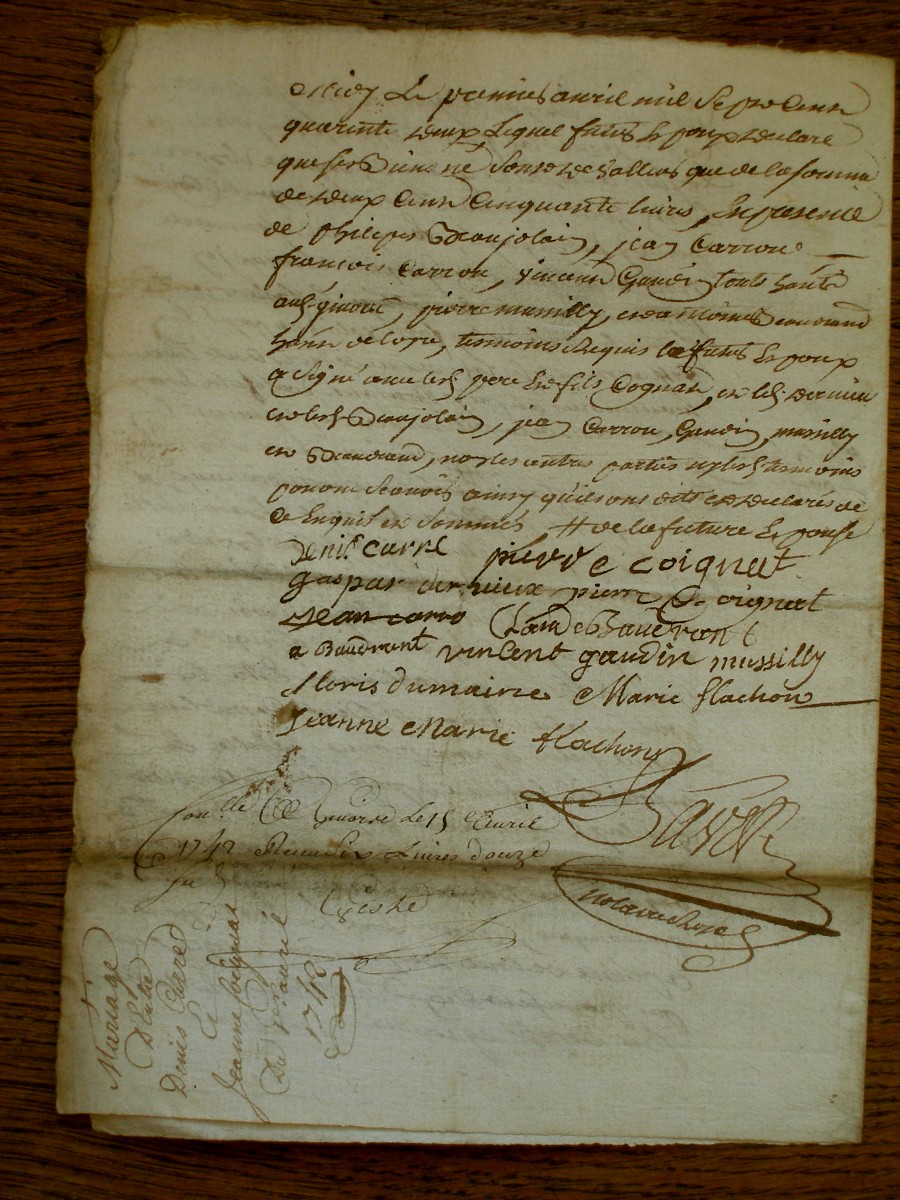 midy le premier avril mil sept cent
quarente deux lequel futur epoux declare
que ses d. ne sont de valleur que de la somme
de deux cent cinquante livres, en presence
de philipes Beaujolain, jean Carron
francois Carron, vincent Gaudin touts habt
aud. givort, pierre mussilly, et antoine Beaudrand
habt de loyre, temoins requis led. futur epoux
a signé avec les d. pere et fils Cognat, et led. dernieu
et lesd. Beaujolain, jean Carron, Gaudin, mussilly
et Beaudrand, non les autres parties ny lesd. temoins
pour ne scavoir ainsy qu'ils ont dit et declarés de
ce enquis et sommés # de la future epouse
denis carré pierre coignat
gaspar dernieux pierre coignat
jean caro Claude Baudrant
a Baudrant vincent gaudin mussilly
floris dumaine Marie flachon
Jeanne Marie flachon
Bavet
notaire Royal
Conllé a givort le 15 Avril
1742 Receu six Livres douze
Mariage
D'entre
Denis Carré
Et
Jeanne Coignat
Du 1er avril
1742